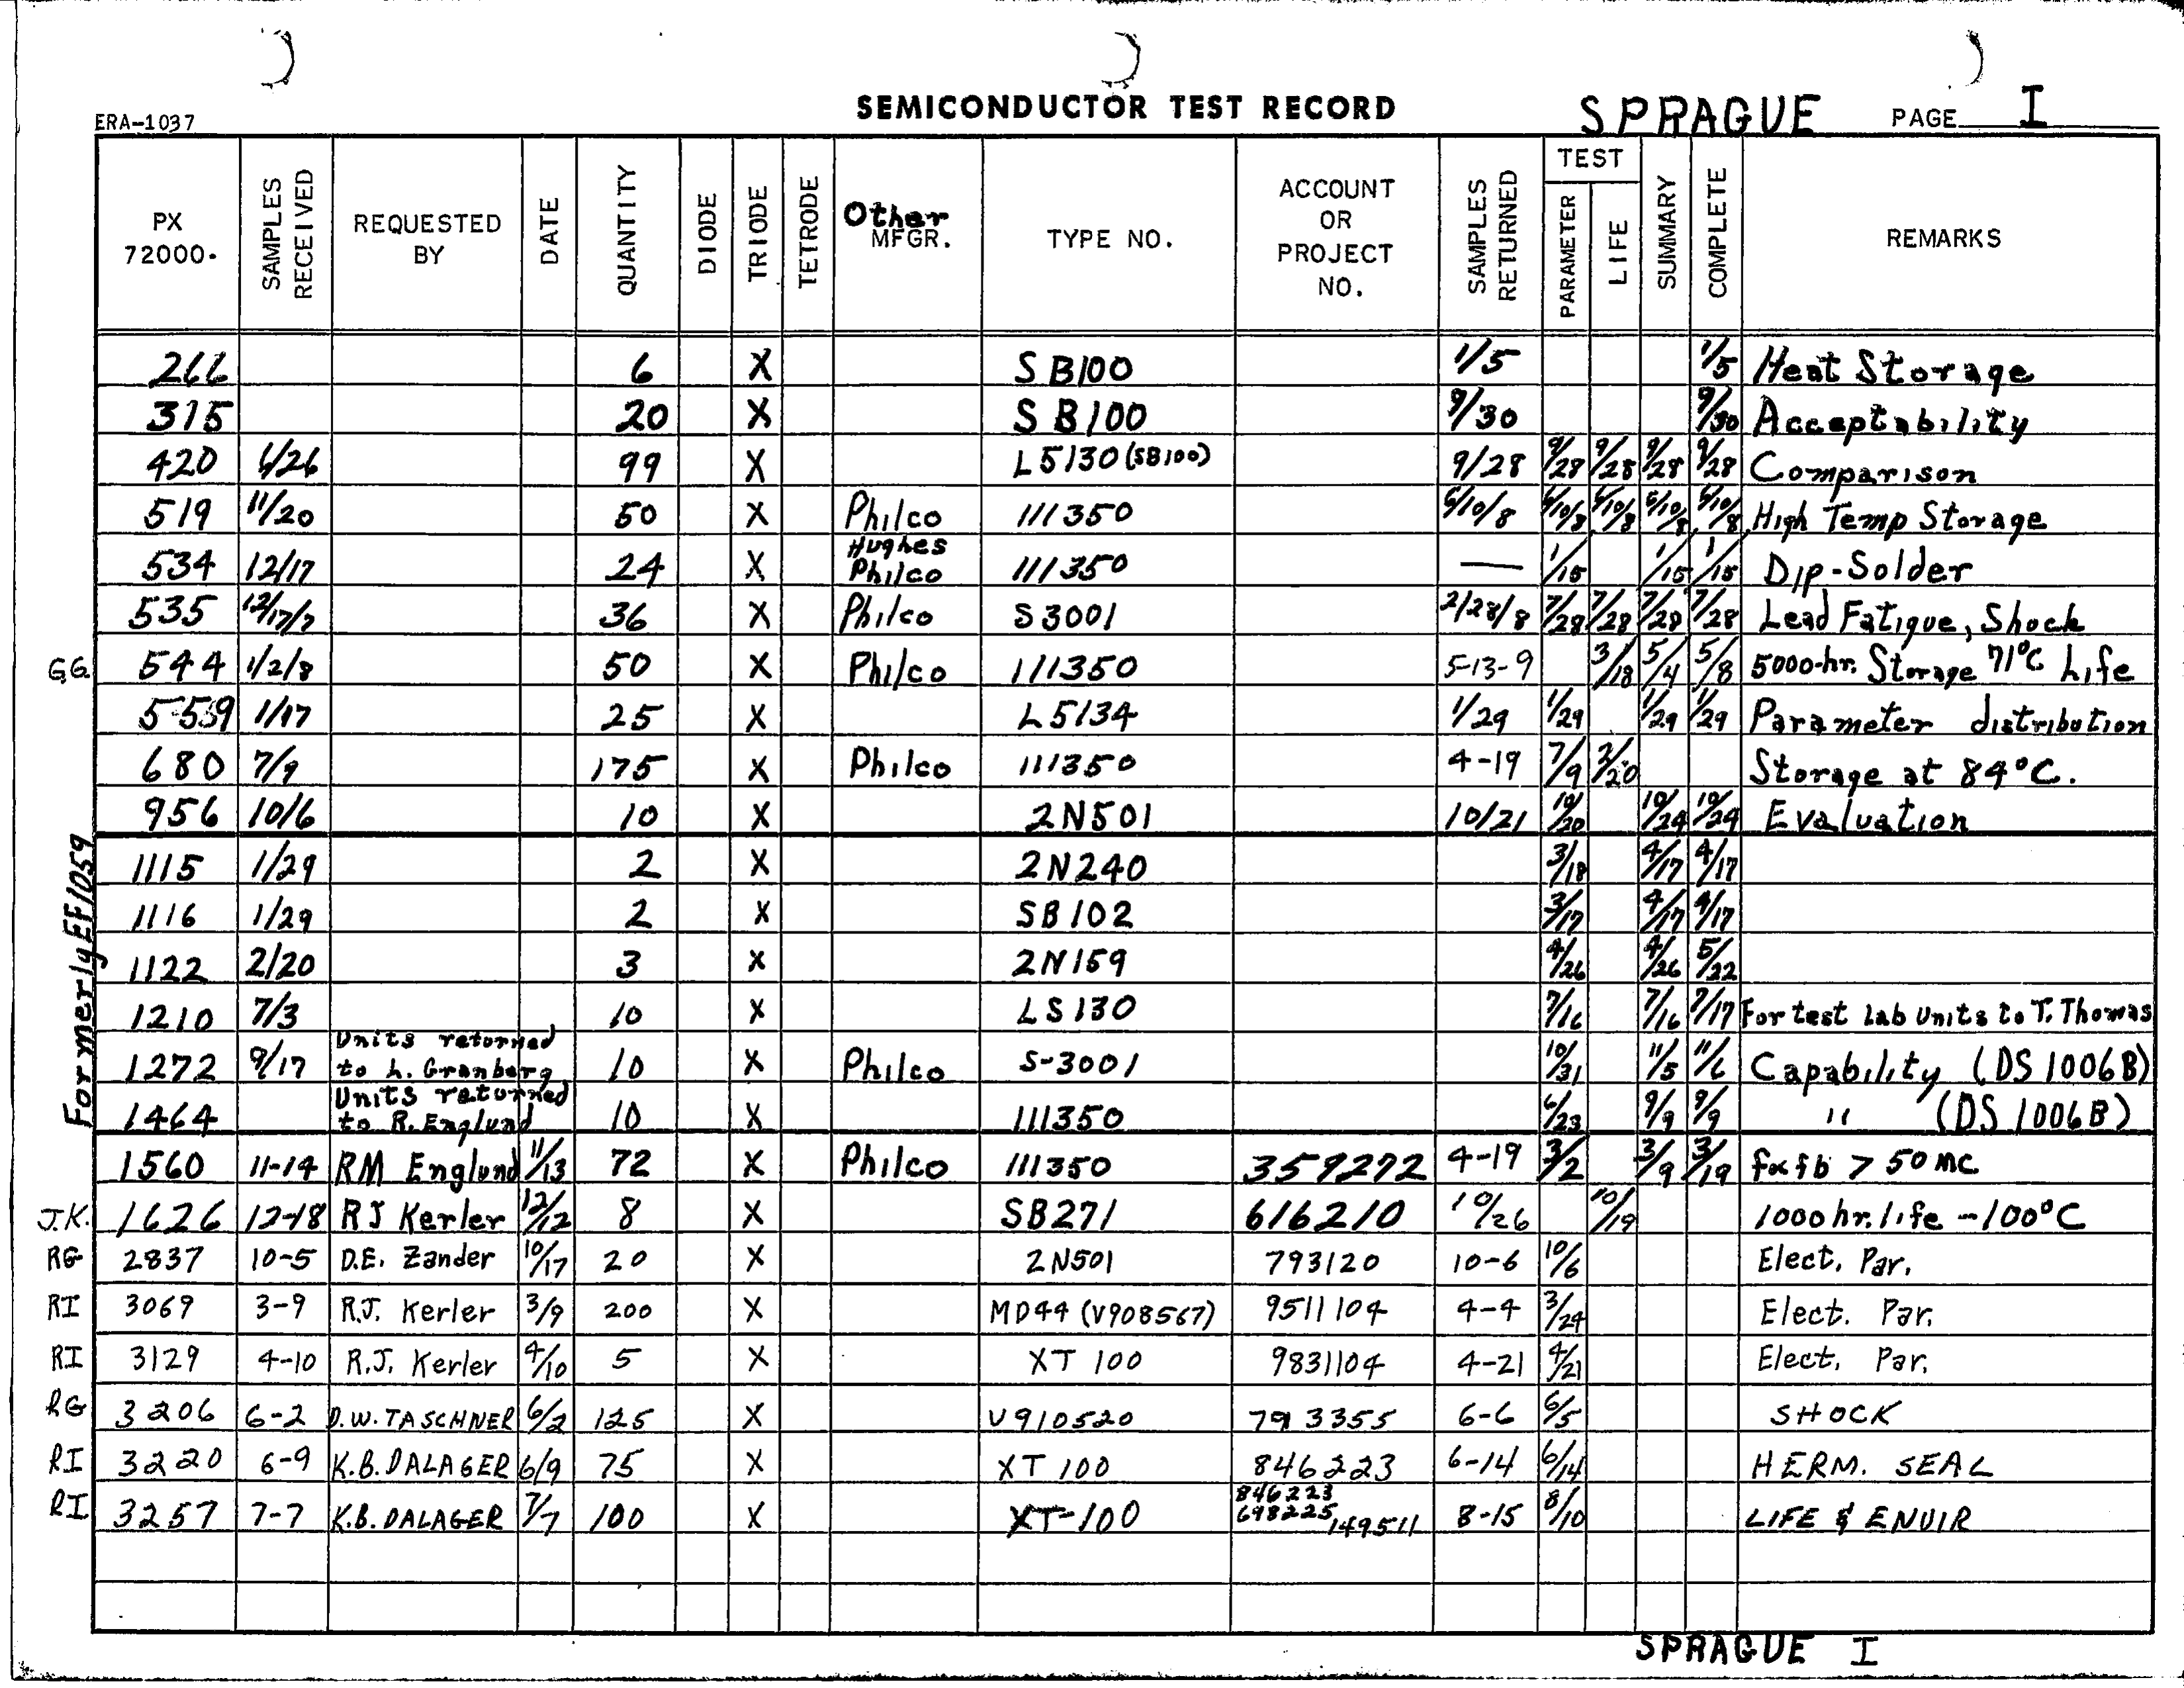 SEMICONDUCTOR TEST RECORD SPRAGUE PAGE I
ERA-1037
PX 72000- SAMPLES RECEIVED REQUESTED BY DATE QUANTITY DIODE TRIODE TETRODE Other MFGR. TYPE NO. ACCOUNT OR PROJECT NO. SAMPLES RETURNED TEST PARAMETER LIFE SUMMARY COMPLETE REMARKS
266 6 X SB100 1/5 1/5 Heat Storage
315 20 X SB100 9/30 9/30 Acceptability
420 6/26 99 X L5130 (SB100) 9/28 9/28 9/28 9/28 9/28 Comparison
519 11/20 50 X Philco 111350 6/10/8 6/10/8 6/10/8 6/10/8 6/10/8 High Temp Storage
534 12/17 24 X Hughes Philco 111350 — 1/15 1/15 1/15 Dip-Solder
535 12/17/7 36 X Philco S3001 2/28/8 7/28 7/28 7/28 7/28 Lead Fatigue, Shock
G.G. 544 1/2/8 50 X Philco 111350 5-13-9 3/18 5/4 5/8 5000-hr. Storage 71°C Life
5559 1/17 25 X L5134 1/29 1/29 1/29 1/29 Parameter distribution
680 7/9 175 X Philco 111350 4-19 7/9 2/20 Storage at 84°C.
956 10/6 10 X 2N501 10/21 10/20 10/24 10/24 Evaluation
Formerly EF/1059
1115 1/29 2 X 2N240 3/18 4/17 4/17
1116 1/29 2 X SB102 3/17 4/17 4/17
1122 2/20 3 X 2N159 4/26 4/26 5/22
1210 7/3 10 X L5130 7/16 7/16 7/17 For test Lab Units to T. Thomas
1272 9/17 Units returned to L. Granberg 10 X Philco S-3001 10/31 11/5 11/6 Capability (DS 1006B)
1464 Units returned to R. Englund 10 X 111350 6/23 9/9 9/9 " (DS 1006B)
1560 11-14 RM Englund 11/13 72 X Philco 111350 359272 4-19 3/2 3/9 3/19 fαfb > 50 MC
J.K. 1626 12-18 RJ Kerler 12/12 8 X SB271 616210 10/26 10/19 1000 hr. life -100°C
RG 2837 10-5 D.E. Zander 10/17 20 X 2N501 793120 10-6 10/6 Elect. Par.
RI 3069 3-9 R.J. Kerler 3/9 200 X MD44 (V908567) 9511104 4-4 3/24 Elect. Par.
RI 3129 4-10 R.J. Kerler 4/10 5 X XT 100 9831104 4-21 4/21 Elect. Par.
RG 3206 6-2 D.W. TASCHNER 6/2 125 X V910520 793355 6-6 6/5 SHOCK
RI 3220 6-9 K.B. DALAGER 6/9 75 X XT 100 846223 6-14 6/14 HERM. SEAL
RI 3257 7-7 K.B. DALAGER 7/7 100 X XT-100 846223 698225, 149511 8-15 8/10 LIFE & ENVIR
SPRAGUE I